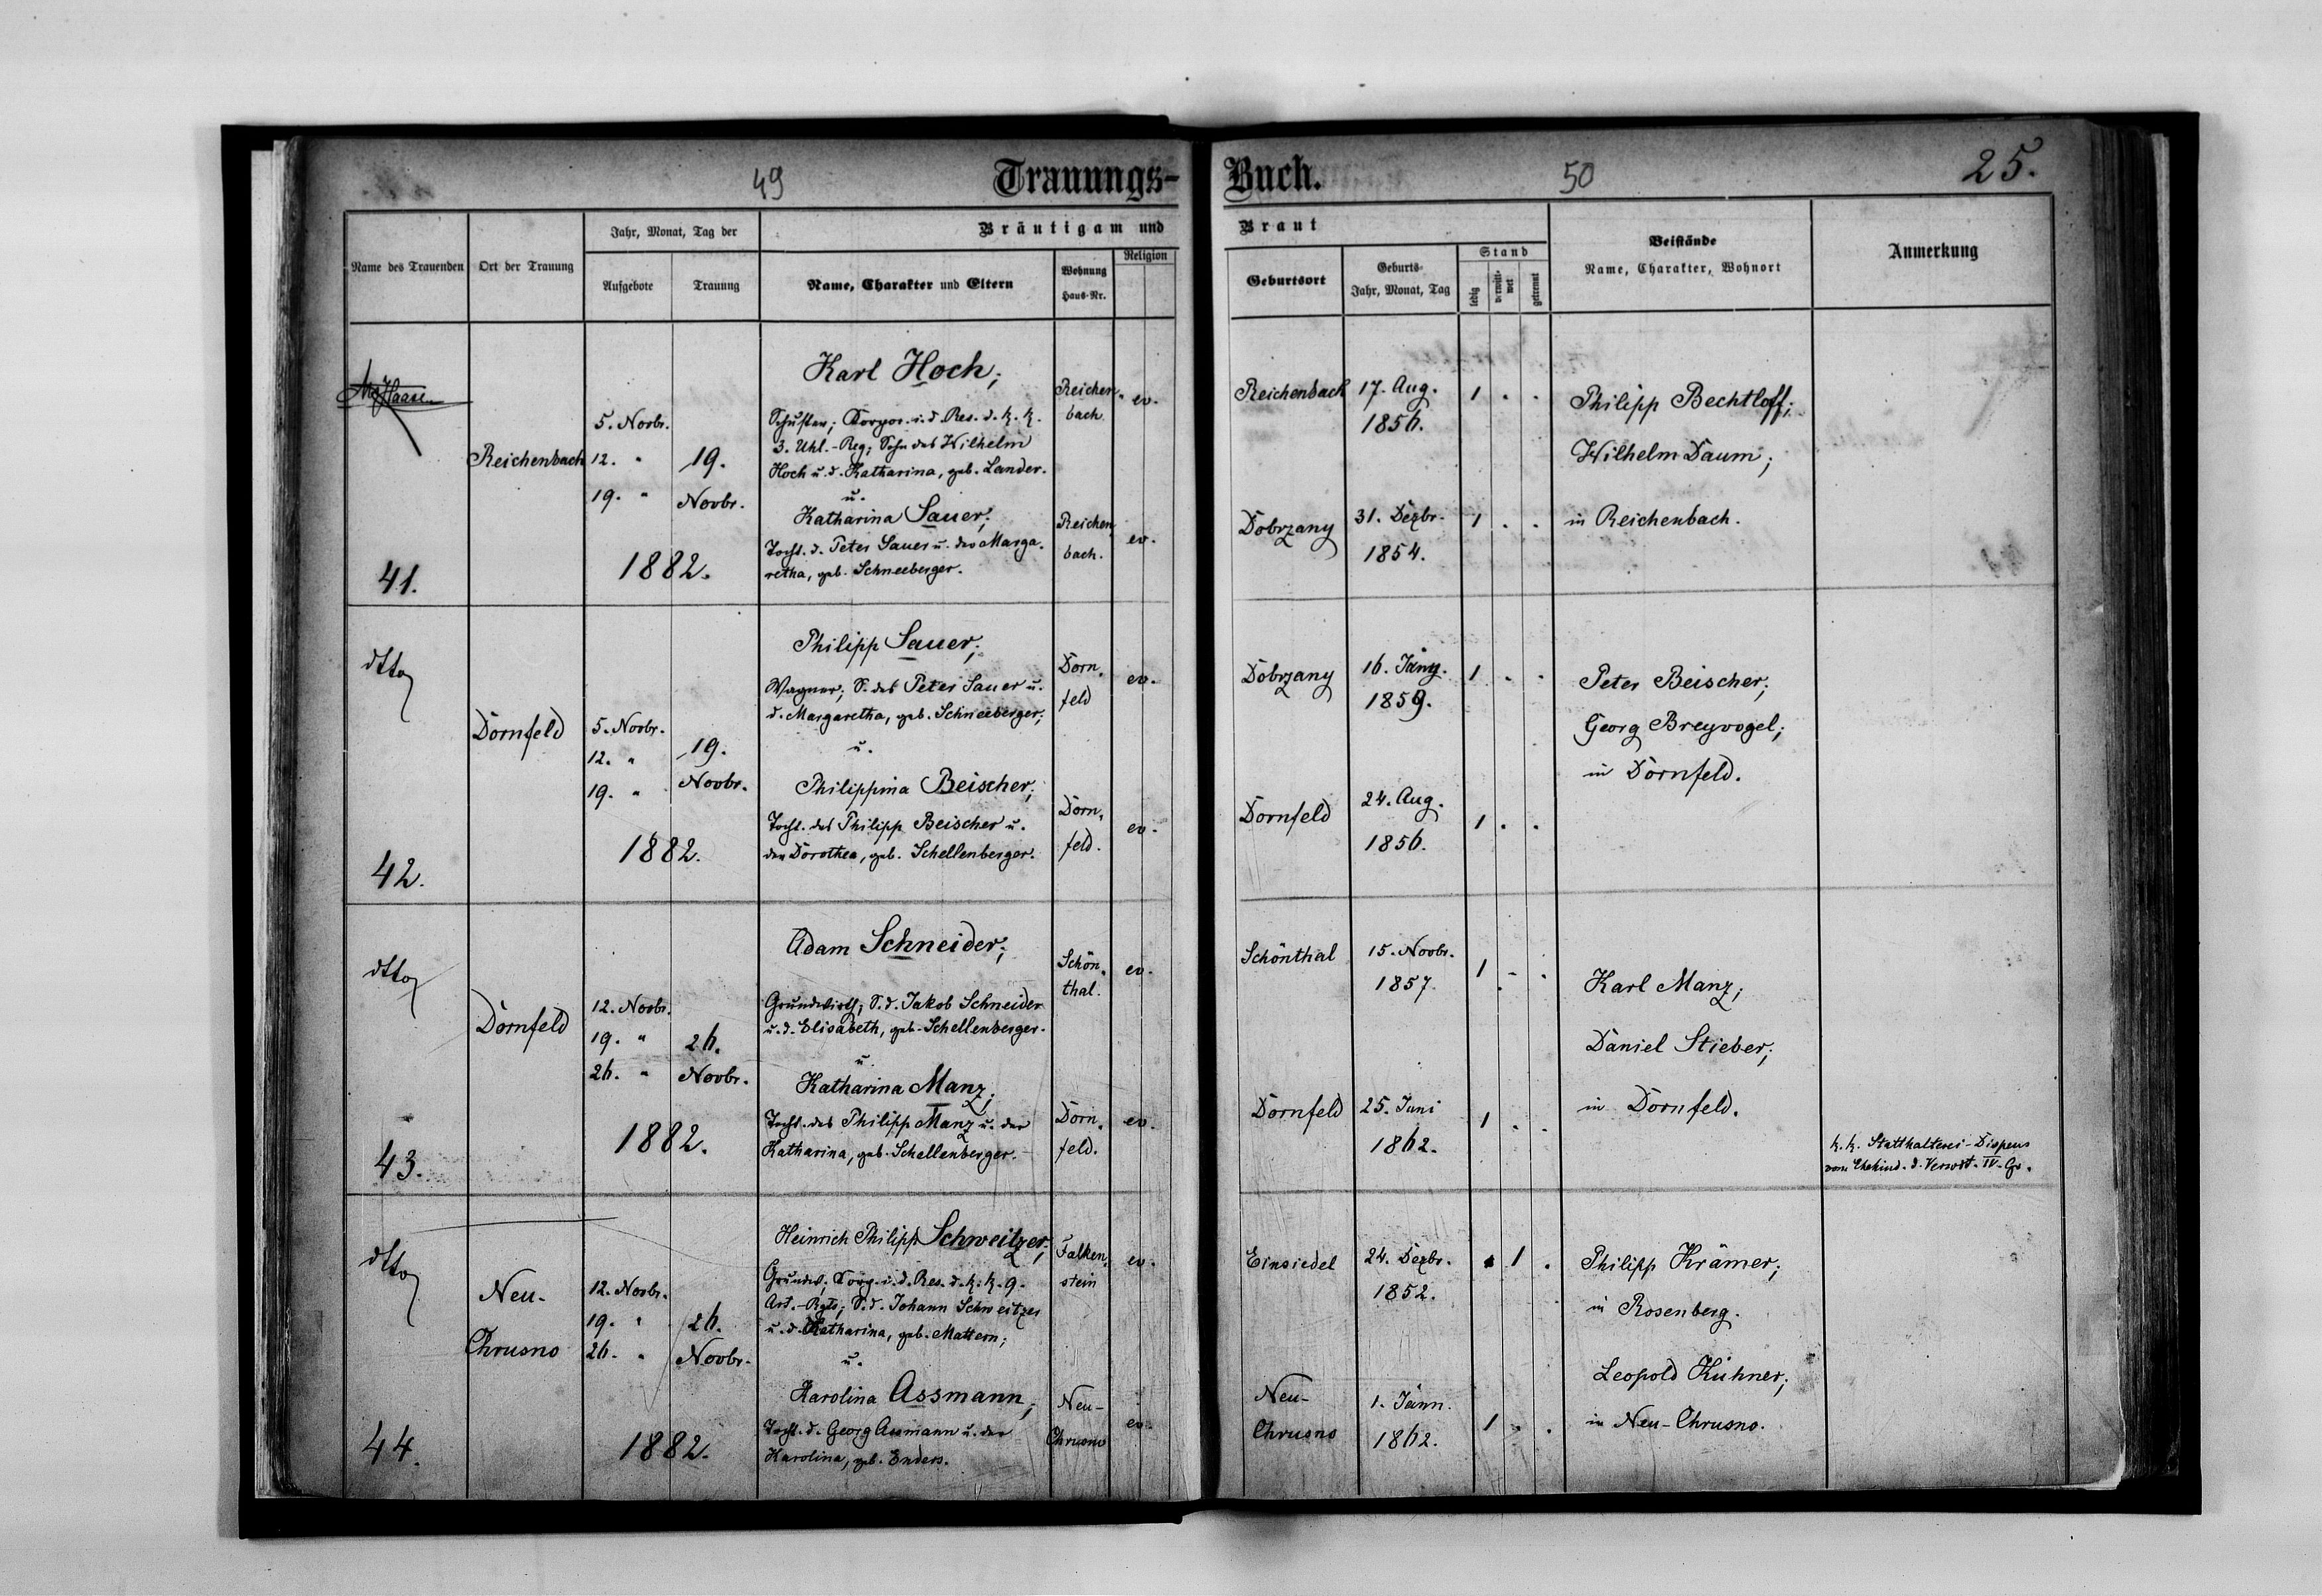 49
Trauungs-
Buch.
50
25.
Name des Trauenden
Ort der Trauung
Jahr, Monat, Tag der
Aufgebote
Trauung
Bräutigam und
Name, Charakter und Eltern
Wohnung
Haus-Nr.
Religion
Braut
Geburtsort
Geburts-
Jahr, Monat, Tag
Stand
ledig
verwitt-
wet
getrennt
Beistände
Name, Charakter, Wohnort
Anmerkung
Haase
41.
Reichenbach
5. Novbr.
12. "
19. "
19.
Novbr.
1882.
Karl Hoch;
Schuster; Korpor. i. d. Res. d. k. k.
3. Uhl.-Reg; Sohn des Wilhelm
Hoch u. d. Katharina, geb. Lander.
u.
Katharina Sauer;
Tocht. d. Peter Sauer u. der Marga-
retha, geb. Schneeberger.
Reichen-
bach.
ev.
Reichen-
bach.
ev.
Reichenbach
17. Aug.
1856.
1 . .
Dobrzany
31. Dezbr.
1854.
1 . .
Philipp Bechtloff;
Wilhelm Daum;
in Reichenbach.
dtto
42.
Dornfeld
5. Novbr.
12. "
19. "
19.
Novbr.
1882.
Philipp Sauer;
Wagner; S. des Peter Sauer u.
d. Margaretha, geb. Schneeberger;
u.
Philippina Beischer;
Tocht. des Philipp Beischer u.
der Dorothea, geb. Schellenberger.
Dorn-
feld
ev.
Dorn-
feld.
ev.
Dobrzany
16. Jäng.
1859.
1 . .
Dornfeld
24. Aug.
1856.
1 . .
Peter Beischer;
Georg Breyvogel;
in Dornfeld.
dtto
43.
Dornfeld
12. Novbr.
19. "
26. "
26.
Novbr.
1882.
Adam Schneider;
Grundwirth; S. d. Jakob Schneider
u. d. Elisabeth, geb. Schellenberger.
u.
Katharina Manz;
Tocht. des Philipp Manz u. der
Katharina, geb. Schellenberger.
Schön-
thal.
ev.
Dorn-
feld.
ev.
Schönthal
15. Novbr.
1857.
1 . .
Dornfeld
25. Juni
1862.
1 . .
Karl Manz;
Daniel Stieber;
in Dornfeld.
k. k. Statthalterei-Dispens
vom Ehehind. d. Verwdt. IV. Gr.
dtto
44.
Neu-
Chrusno
12. Novbr.
19. "
26. "
26.
Novbr.
1882.
Heinrich Philipp Schweitzer;
Grundw, Korp. i. d. Res. d. k. k. 9.
Art.-Rgts; S. d. Johann Schweitzer
u. d. Katharina, geb. Mattern;
u.
Karolina Assmann;
Tocht. d. Georg Assmann u. der
Karolina, geb. Enders.
Falken-
stein
ev.
Neu-
Chrusno
ev.
Einsiedel
24. Dezbr.
1852.
. 1 .
Neu-
Chrusno
1. Jänn.
1862.
1 . .
Philipp Krämer;
in Rosenberg.
Leopold Kühner;
in Neu-Chrusno.